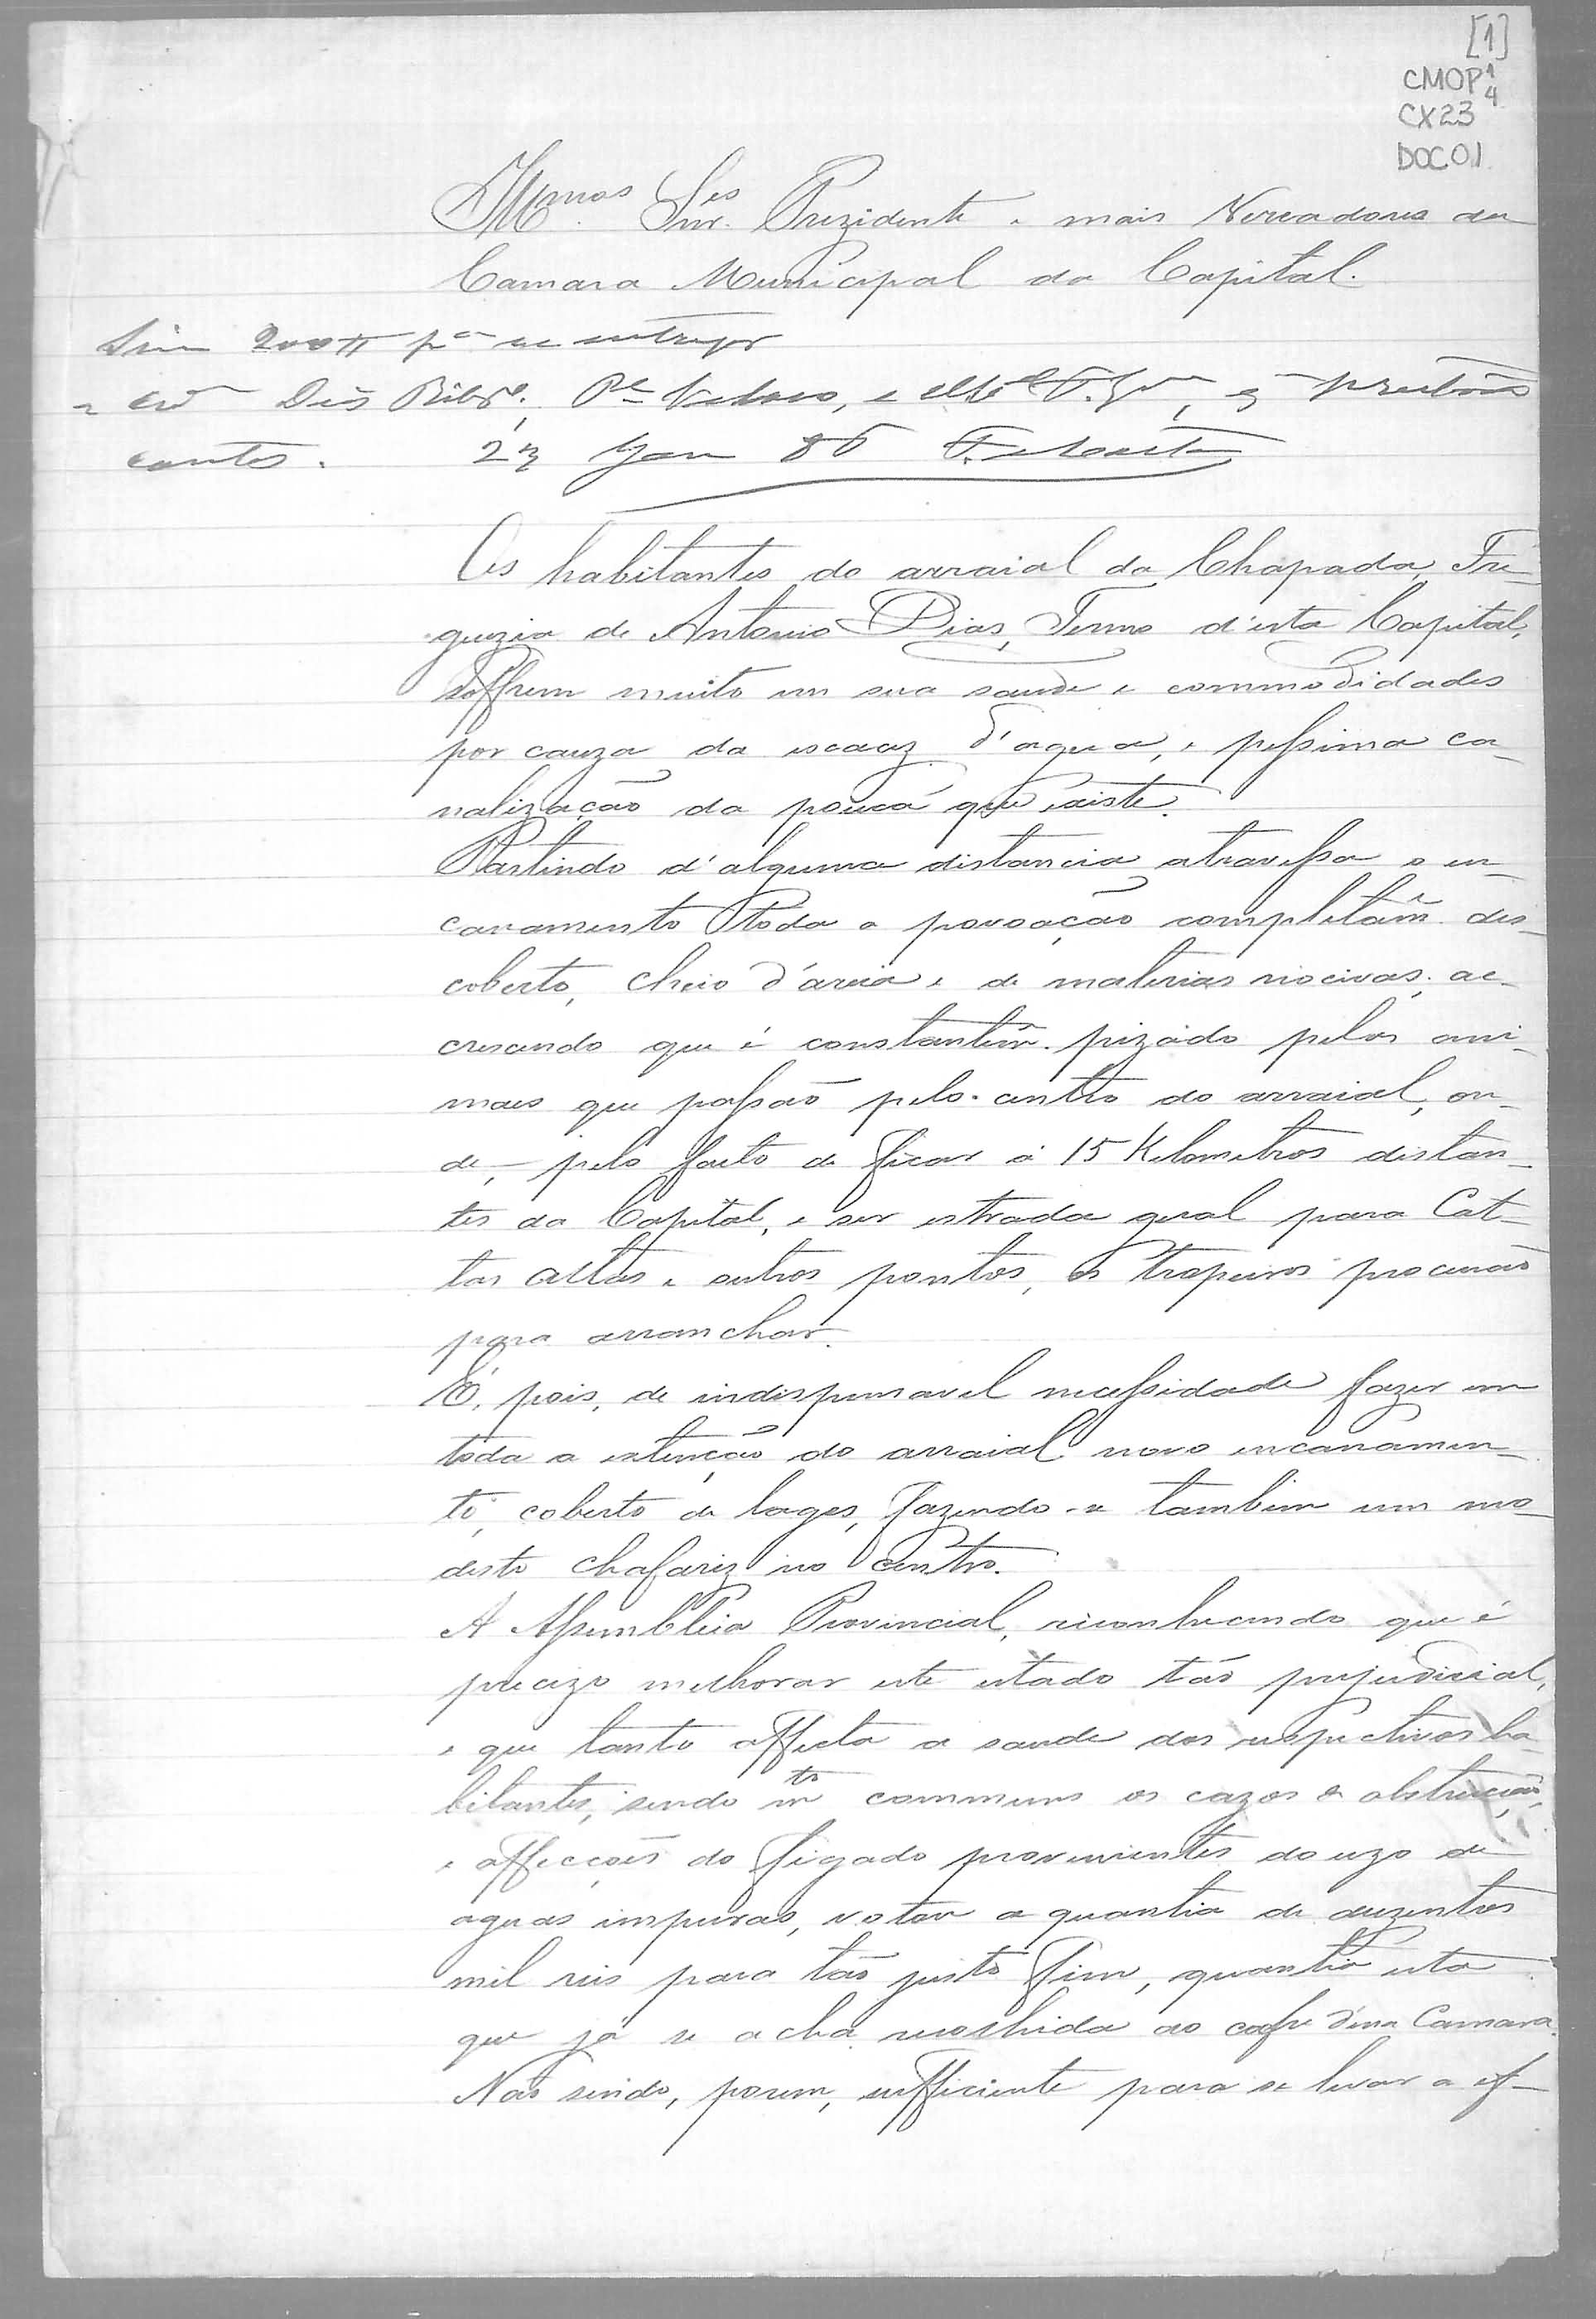 [1]
CMOP 1/4
CX23
DOC.01
Illmos Snres Prezidente e mais Vereadores da
Camara Municipal da Capital.
Sim 200# pa se entregar
contas. 23 Jan 86
Os habitantes do arraial da Chapada, Fre-
guezia de Antonio Dias, Termo d'esta Capital,
soffrem muito em sua saude e commodidades
por cauza da escacez d'agua, e pessima ca-
nalização da pouca que existe.
Partindo d'alguma distancia atravessa o en-
canamento toda a povoação completame. des-
coberto, cheio d'areia e de materias nocivas; ac-
crescendo que é constanteme. pizado pelos ani-
maes que passão pelo centro do arraial, on-
de, pelo facto de ficar á 15 Kilometros distan-
tes da Capital, e ser estrada geral para Cat-
tas Altas e outros pontos, os tropeiros procurão
para arranchar.
É, pois, de indispensavel necessidade fazer em
toda a extenção do arraial novo encanamen-
to, coberto de lages, fazendo-se tambem um mo-
desto chafariz no centro.
A Assembléia Provincial, reconhecendo que é
precizo melhorar este estado tão prejudicial,
e que tanto affecta a saude dos respectivos ha-
bitantes, sendo mto communs os cazos de obstrucção,
e affecções do figado provenientes do uzo de
aguas impuras, votou a quantia de duzentos
mil reis para tão justo fim, quantia esta
que já se acha recolhida ao cofre d'essa Camara.
Não sendo, porem, sufficiente para se levar a ef-